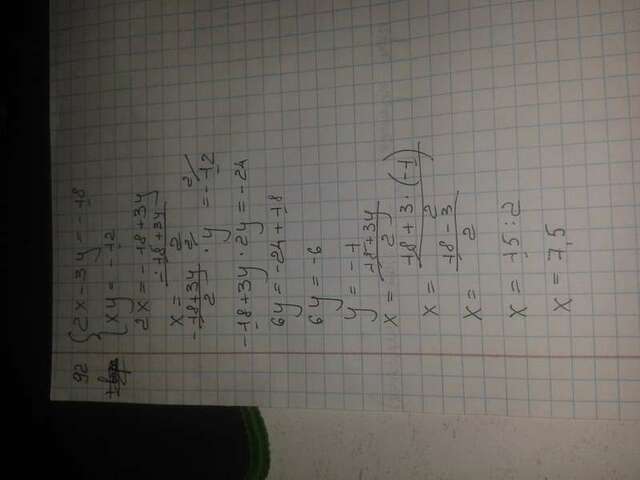 92 {2x-3y=-18
{xy=-12
2x=-18+3y
x=\frac{-18+3y}{2}
\frac{-18+3y}{2}·y=-12
-18+3y·2y=-24
6y=-24+18
6y=-6
y=-1
x=\frac{18+3y}{2}
x=\frac{18+3·(-1)}{2}
x=\frac{18-3}{2}
x=15:2
x=7,5